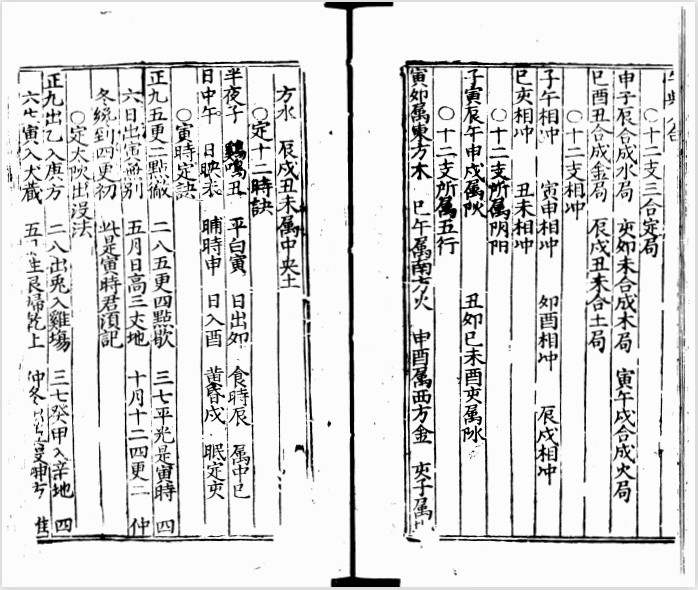 〇十二支三合定局
申子辰合成水局 亥卯未合成木局 寅午戌合成火局
巳酉丑合成金局 辰戌丑未合土局
〇十二支相冲
子午相冲 寅申相冲 卯酉相冲 辰戌相冲
巳亥相冲 丑未相冲
〇十二支所属阴阳
子寅辰午申戌属阳 丑卯巳未酉亥属阴
〇十二支所属五行
寅卯属東方木 巳午属南方火 申酉属西方金 亥子属
方水 辰戌丑未属中央土
〇定十二時訣
半夜子 鷄鳴丑 平白寅 日出卯 食時辰 属中巳
日中午 日映未 晡時申 日入酉 黃昏戌 眠定亥
〇寅時定訣
正九五更二點徹 二八五更四點歇 三七平光是寅時 四
六日出寅無别 五月日高三丈地 十月十二四更二 仲
冬纔到四更初 此是寅時君須記
〇定太陽出没法
正九出乙入庚方 二八出兎入雞塲 三七發甲入辛地 四
六生寅入犬藏 五生艮歸乾上 仲冬出没坤方 惟